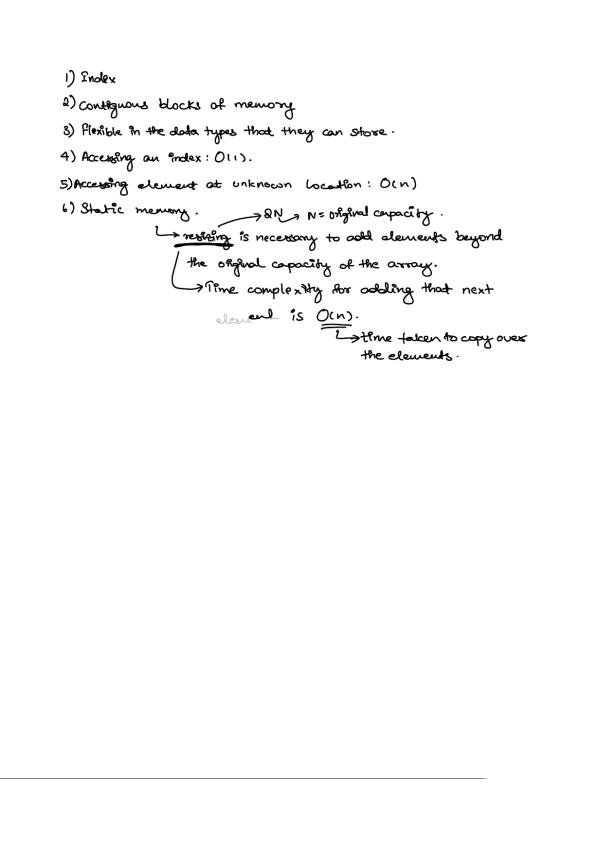 1) Index
2) Contiguous blocks of memory
3) Flexible in the data types that they can store.
4) Accessing an index: O(1).
5) Accessing element at unknown location: O(n)
6) Static memory.
→ 2N → N = original capacity.
→ resizing is necessary to add elements beyond
the original capacity of the array.
→ Time complexity for adding that next
element is O(n).
→ time taken to copy over
the elements.